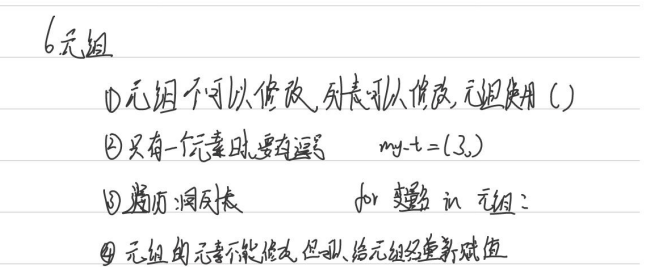 6元组
①元组不可以修改,列表可以修改,元组使用()
②只有一个元素时,要有逗号 my-t=(3,)
③遍历:同列表 for 变量名 in 元组:
④元组的元素不能修改,但可以给元组名重新赋值